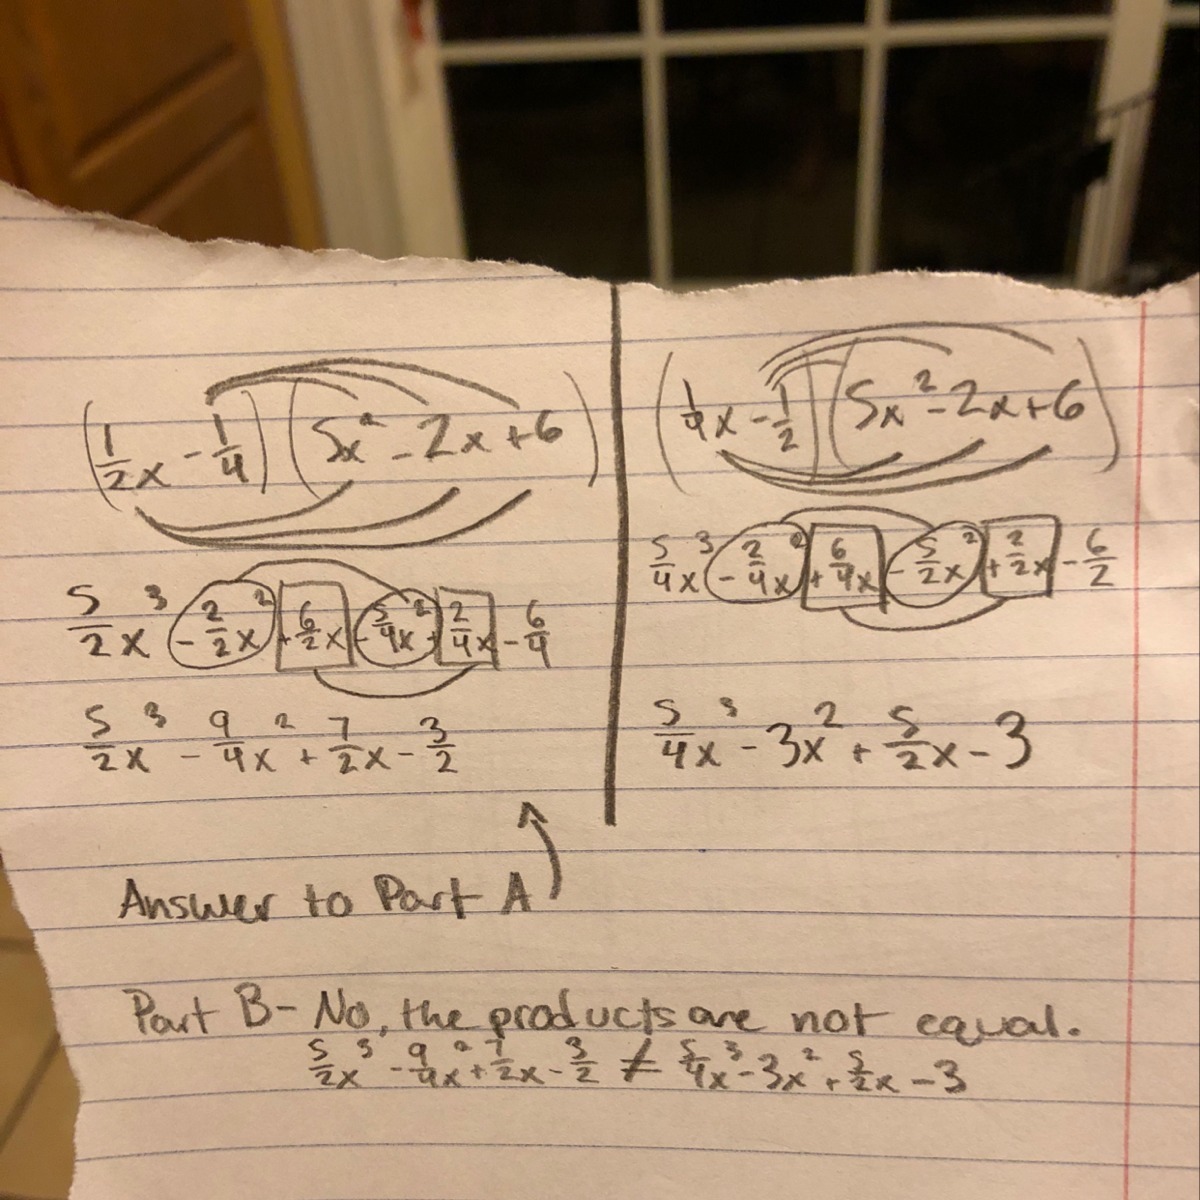 (1/2x - 1/4)(5x² - 2x + 6)
5/2x³ - 2/2x² + 6/2x - 5/4x² + 2/4x - 6/4
5/2x³ - 9/4x² + 7/2x - 3/2
(1/4x - 1/2)(5x² - 2x + 6)
5/4x³ - 2/4x² + 6/4x - 5/2x² + 2/2x - 6/2
5/4x³ - 3x² + 5/2x - 3
Answer to Part A
Part B - No, the products are not equal.
5/2x³ - 9/4x² + 7/2x - 3/2 ≠ 5/4x³ - 3x² + 5/2x - 3